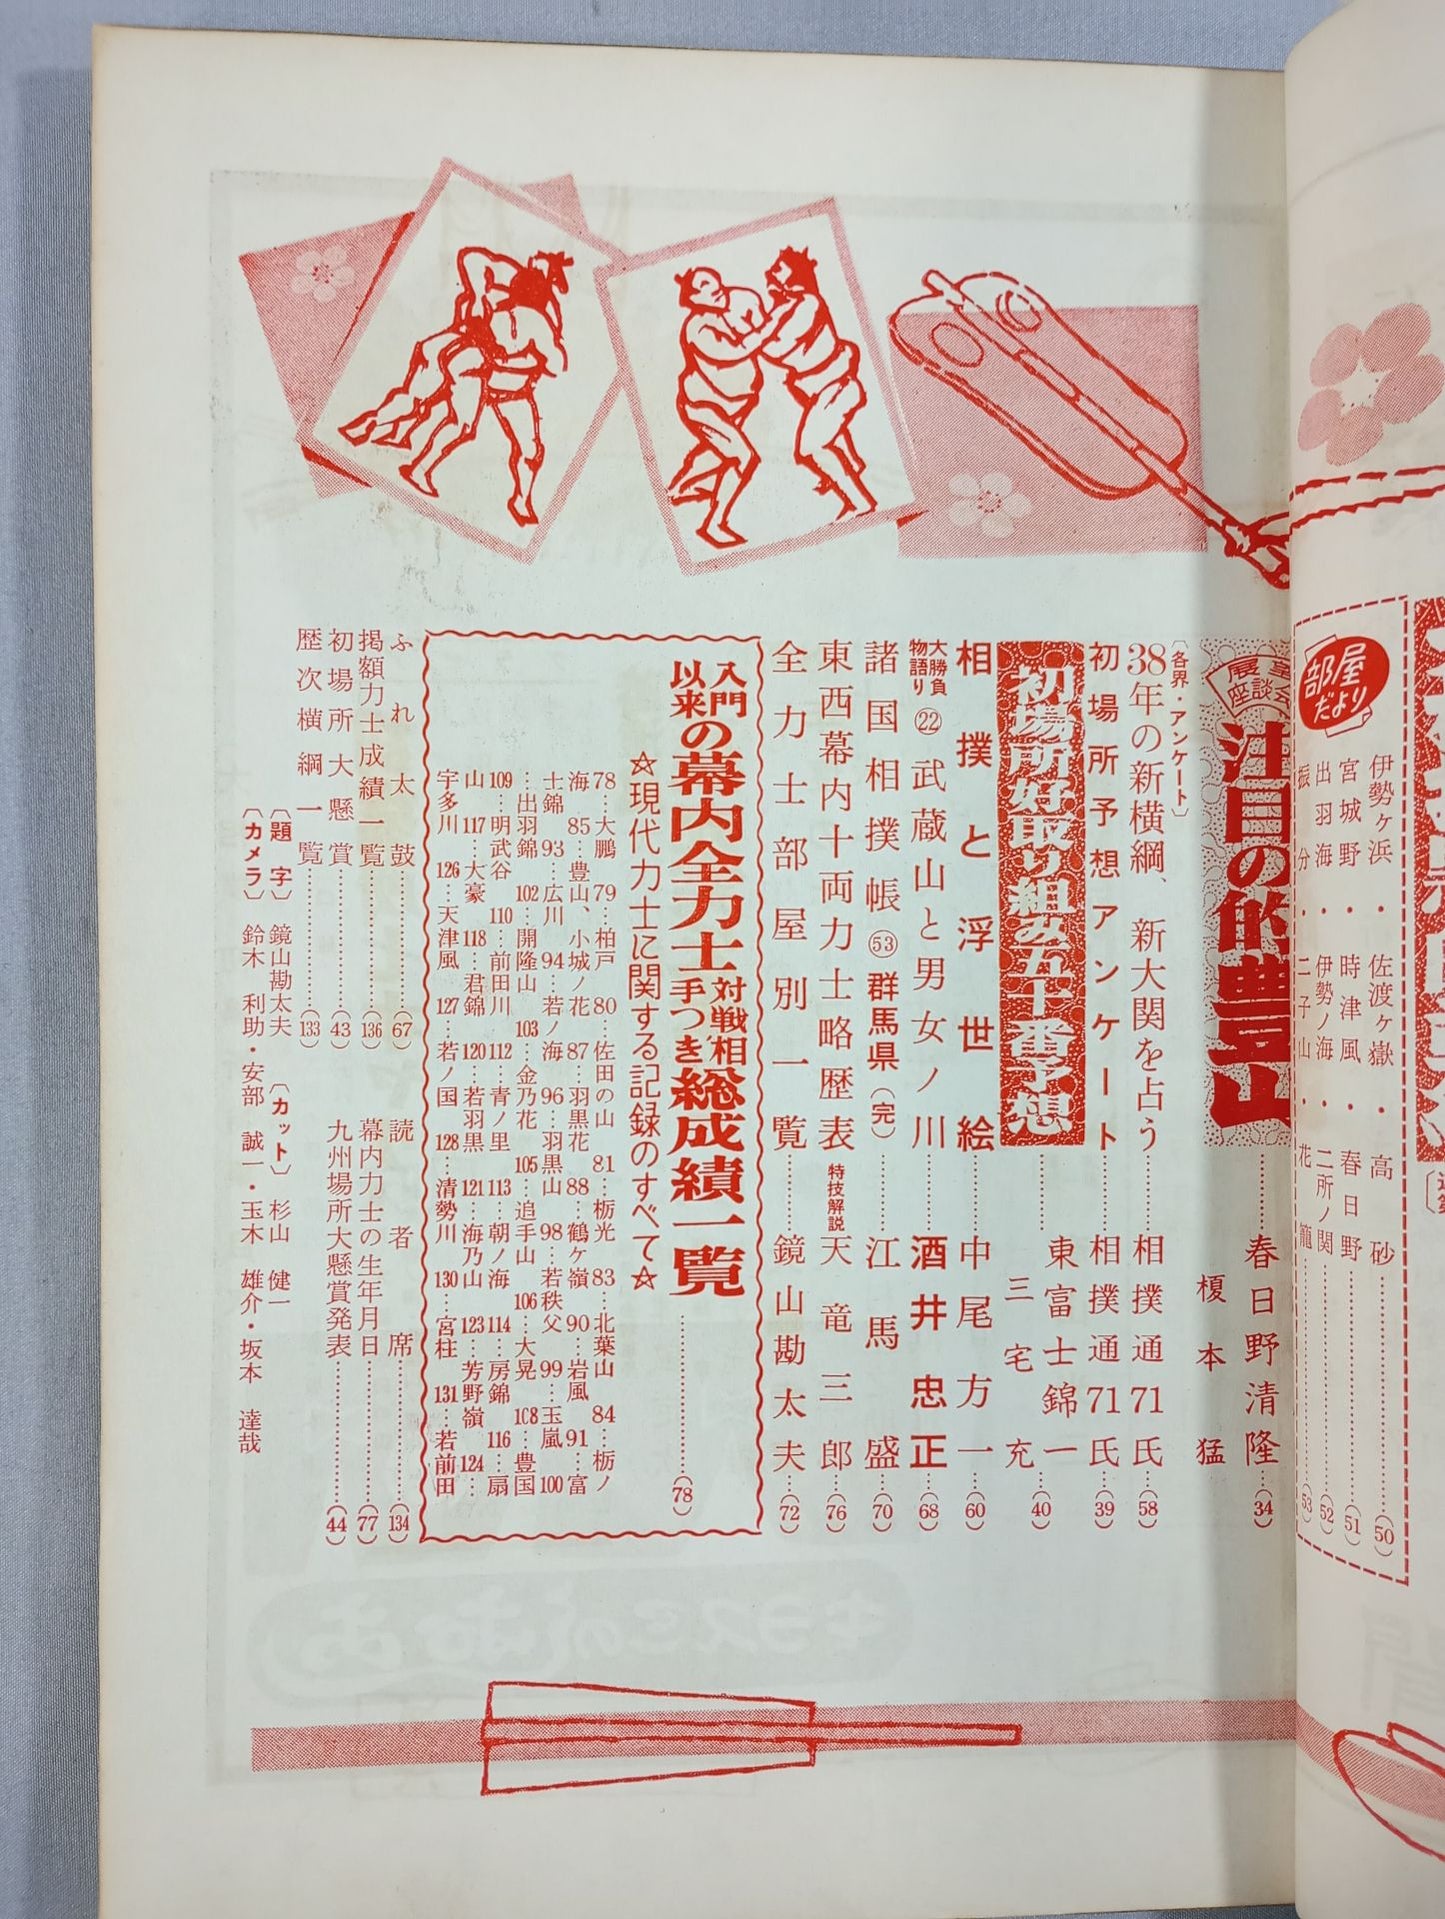 部屋だより
伊勢ヶ浜・佐渡ヶ嶽・高砂……(50)
宮城野・時津風・春日野……(51)
出羽海・伊勢ノ海・二所ノ関……(52)
振分・二子山・花籠……(53)
座談会
注目の的豊山……春日野清隆
榎本猛
(34)
〔各界・アンケート〕
38年の新横綱、新大関を占う……相撲通71氏…(58)
初場所予想アンケート……相撲通71氏…(39)
初場所好取り組み五十番予想……東富士錦一
三宅充
(40)
相撲と浮世絵……中尾方一…(60)
大勝負物語り㉒武蔵山と男女ノ川……酒井忠正…(68)
諸国相撲帳㊳群馬県(完)……江馬盛…(70)
東西幕内十両力士略歴表 特技解説 天竜三郎…(76)
全力士部屋別一覧……鏡山勘太夫…(72)
入門以来の幕内全力士対戦相手つき総成績一覧……(78)
☆現代力士に関する記録のすべて☆
78…大鵬 79…柏戸 80…佐田の山 81…栃光 83…北葉山 84…栃ノ
海 85…豊山、小城ノ花 87…羽黒花 88…鶴ヶ嶺 90…岩風 91…富
士錦 93…広川 94…若ノ海 96…羽黒山 98…若秩父 99…玉嵐 100
…出羽錦 102…開隆山 103…金乃花 105…追手山 106…大晃 108…豊国
109…明武谷 110…前田川 112…青ノ里 113…朝ノ海 114…房錦 116…扇
山 117…大豪 118…君錦 120…若羽黒 121…海乃山 123…芳野嶺 124…
宇多川 126…天津風 127…若ノ国 128…清勢川 130…宮柱 131…若前田
ふれ太鼓……(67)
読者席……(134)
掲額力士成績一覧……(136)
幕内力士の生年月日……(77)
初場所大懸賞……(43)
九州場所大懸賞発表……(44)
歴次横綱一覧……(133)
〔題字〕鏡山勘太夫 〔カット〕杉山健一
〔カメラ〕鈴木利助・安部誠一・玉木雄介・坂本達哉